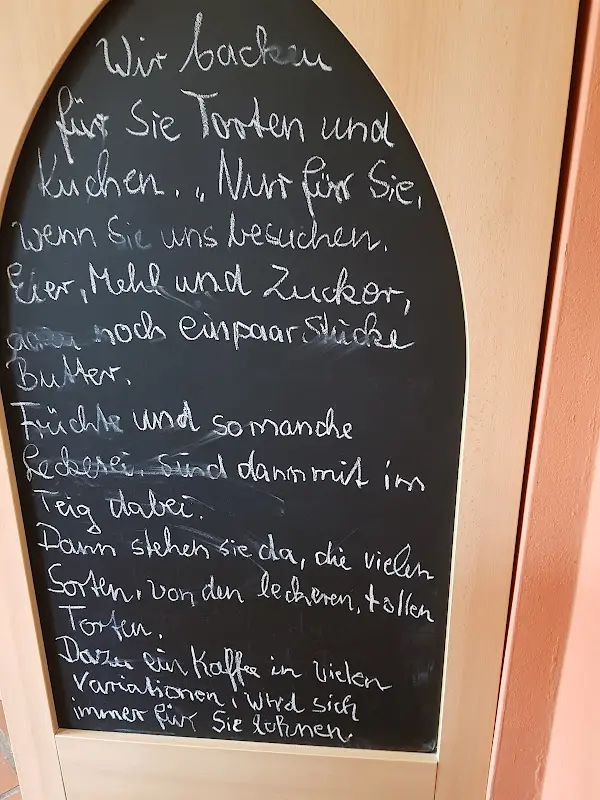 Wir backen
für Sie Torten und
Kuchen. „Nur für Sie,
wenn Sie uns besuchen.
Eier, Mehl und Zucker,
dazu noch ein paar Stücke
Butter.
Früchte und so manche
Leckerei. Sind dann mit im
Teig dabei.
Dann stehen sie da, die vielen
Sorten, von den leckeren, tollen
Torten.
Dazu ein Kaffee in vielen
Variationen, wird sich
immer für Sie lohnen.